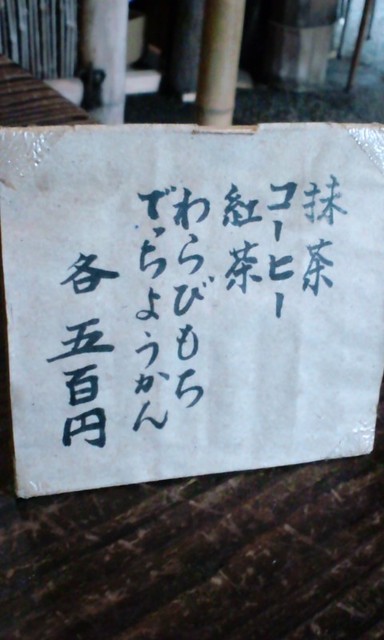 抹茶
コーヒー
紅茶
わらびもち
でっちようかん
各五百円